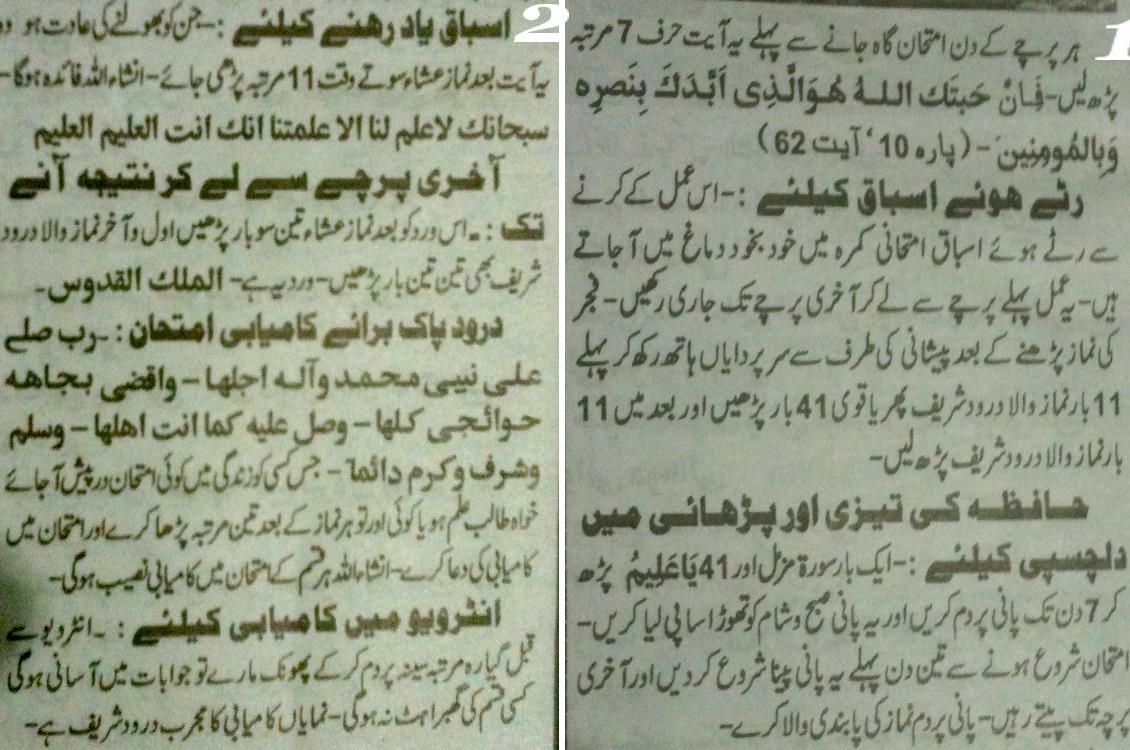 1
ہر پرچے کے دن امتحان گاہ جانے سے پہلے یہ آیت حرف 7 مرتبہ
پڑھ لیں- فَاِنَّ حَبتَك اللهُ هُوَالَّذِى اَبَّدَكَ بِنَصرِه
وَبِالمُومِنِينَ - (پارہ 10، آیت 62)
رٹے ھوئے اسباق کیلئے :- اس عمل کے کرنے
سے رٹے ہوئے اسباق امتحانی کمرہ میں خود بخود دماغ میں آ جاتے
ہیں- یہ عمل پہلے پرچے سے لے کر آخری پرچے تک جاری رکھیں- فجر
کی نماز پڑھنے کے بعد پیشانی کی طرف سے سر پر دایاں ہاتھ رکھ کر پہلے
11 بار نماز والا درود شریف پھر یا قوی 41 بار پڑھیں اور بعد میں 11
بار نماز والا درود شریف پڑھ لیں-
حافظہ کی تیزی اور پڑھائی میں
دلچسپی کیلئے :- ایک بار سورۃ مزمل اور 41 یَاعَلِیمُ پڑھ
کر 7 دن تک پانی پر دم کریں اور یہ پانی صبح و شام کو تھوڑا سا پی لیا کریں-
امتحان شروع ہونے سے تین دن پہلے یہ پانی پینا شروع کر دیں اور آخری
پرچہ تک پیتے رہیں- پانی پر دم نماز کی پابندی والا کرے-
2
اسباق یاد رھنے کیلئے :- جن کو بھولنے کی عادت ہو وہ
یہ آیت بعد نماز عشاء سوتے وقت 11 مرتبہ پڑھی جائے- انشاء اللہ فائدہ ہوگا-
سبحانك لاعلم لنا الا علمتنا انك انت العليم العليم
آخری پرچے سے لے کر نتیجہ آنے
تک :۔ اس ورد کو بعد نماز عشاء تین سو بار پڑھیں اول و آخر نماز والا درود
شریف بھی تین تین بار پڑھیں- ورد یہ ہے- الملك القدوس۔
درود پاک برائے کامیابی امتحان :۔ رب صلے
على نبيى محمد وآله اجلها - واقضى بجاهه
حوائجى كلها - وصل عليه كما انت اهلها - وسلم
وشرف وكرم دائما - جس کسی کو زندگی میں کوئی امتحان درپیش آ جائے
خواہ طالب علم ہو یا کوئی اور تو ہر نماز کے بعد تین مرتبہ پڑھا کرے اور امتحان میں
کامیابی کی دعا کرے- انشاء اللہ ہر قسم کے امتحان میں کامیابی نصیب ہوگی-
انٹرویو میں کامیابی کیلئے :۔ انٹرویو سے
قبل گیارہ مرتبہ سینہ پر دم کر کے پھونک مارے تو جوابات میں آسانی ہوگی
کسی قسم کی گھبراہٹ نہ ہوگی- نمایاں کامیابی کا مجرب درود شریف ہے-